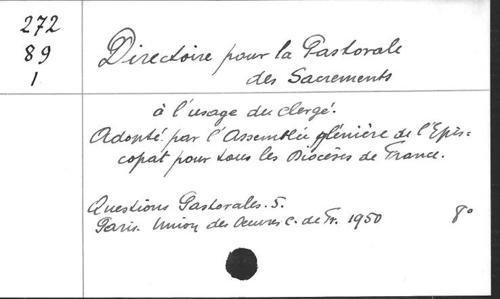 272
89
1
Directoire pour la Pastorale
des Sacrements
à l'usage du clergé.
Adopté par l'Assemblée plénière de l'Epis-
copat pour tous les Diocèses de France.
Questions Pastorales. 5.
Paris. Union des Oeuvres C. de Fr. 1950 8°